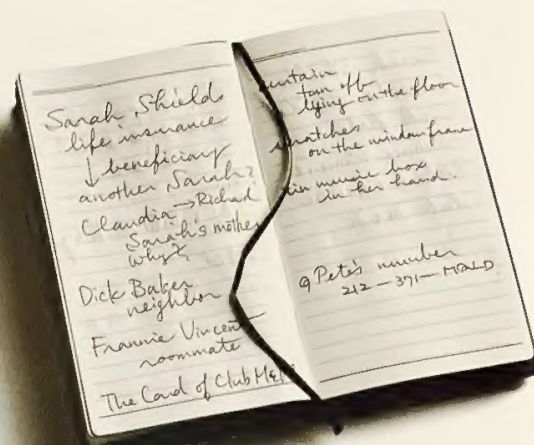 Sarah Shield
life insurance
↓ beneficiary
another Sarah?
Claudia → Richard
Sarah's mother
why?
Dick Baker
neighbor
Frannie Vincent
roommate
The Card of Club
untain
torn off
lying on the floor
scratches
on the window frame
tin music box
in her hand.
Pete's number
212-371-